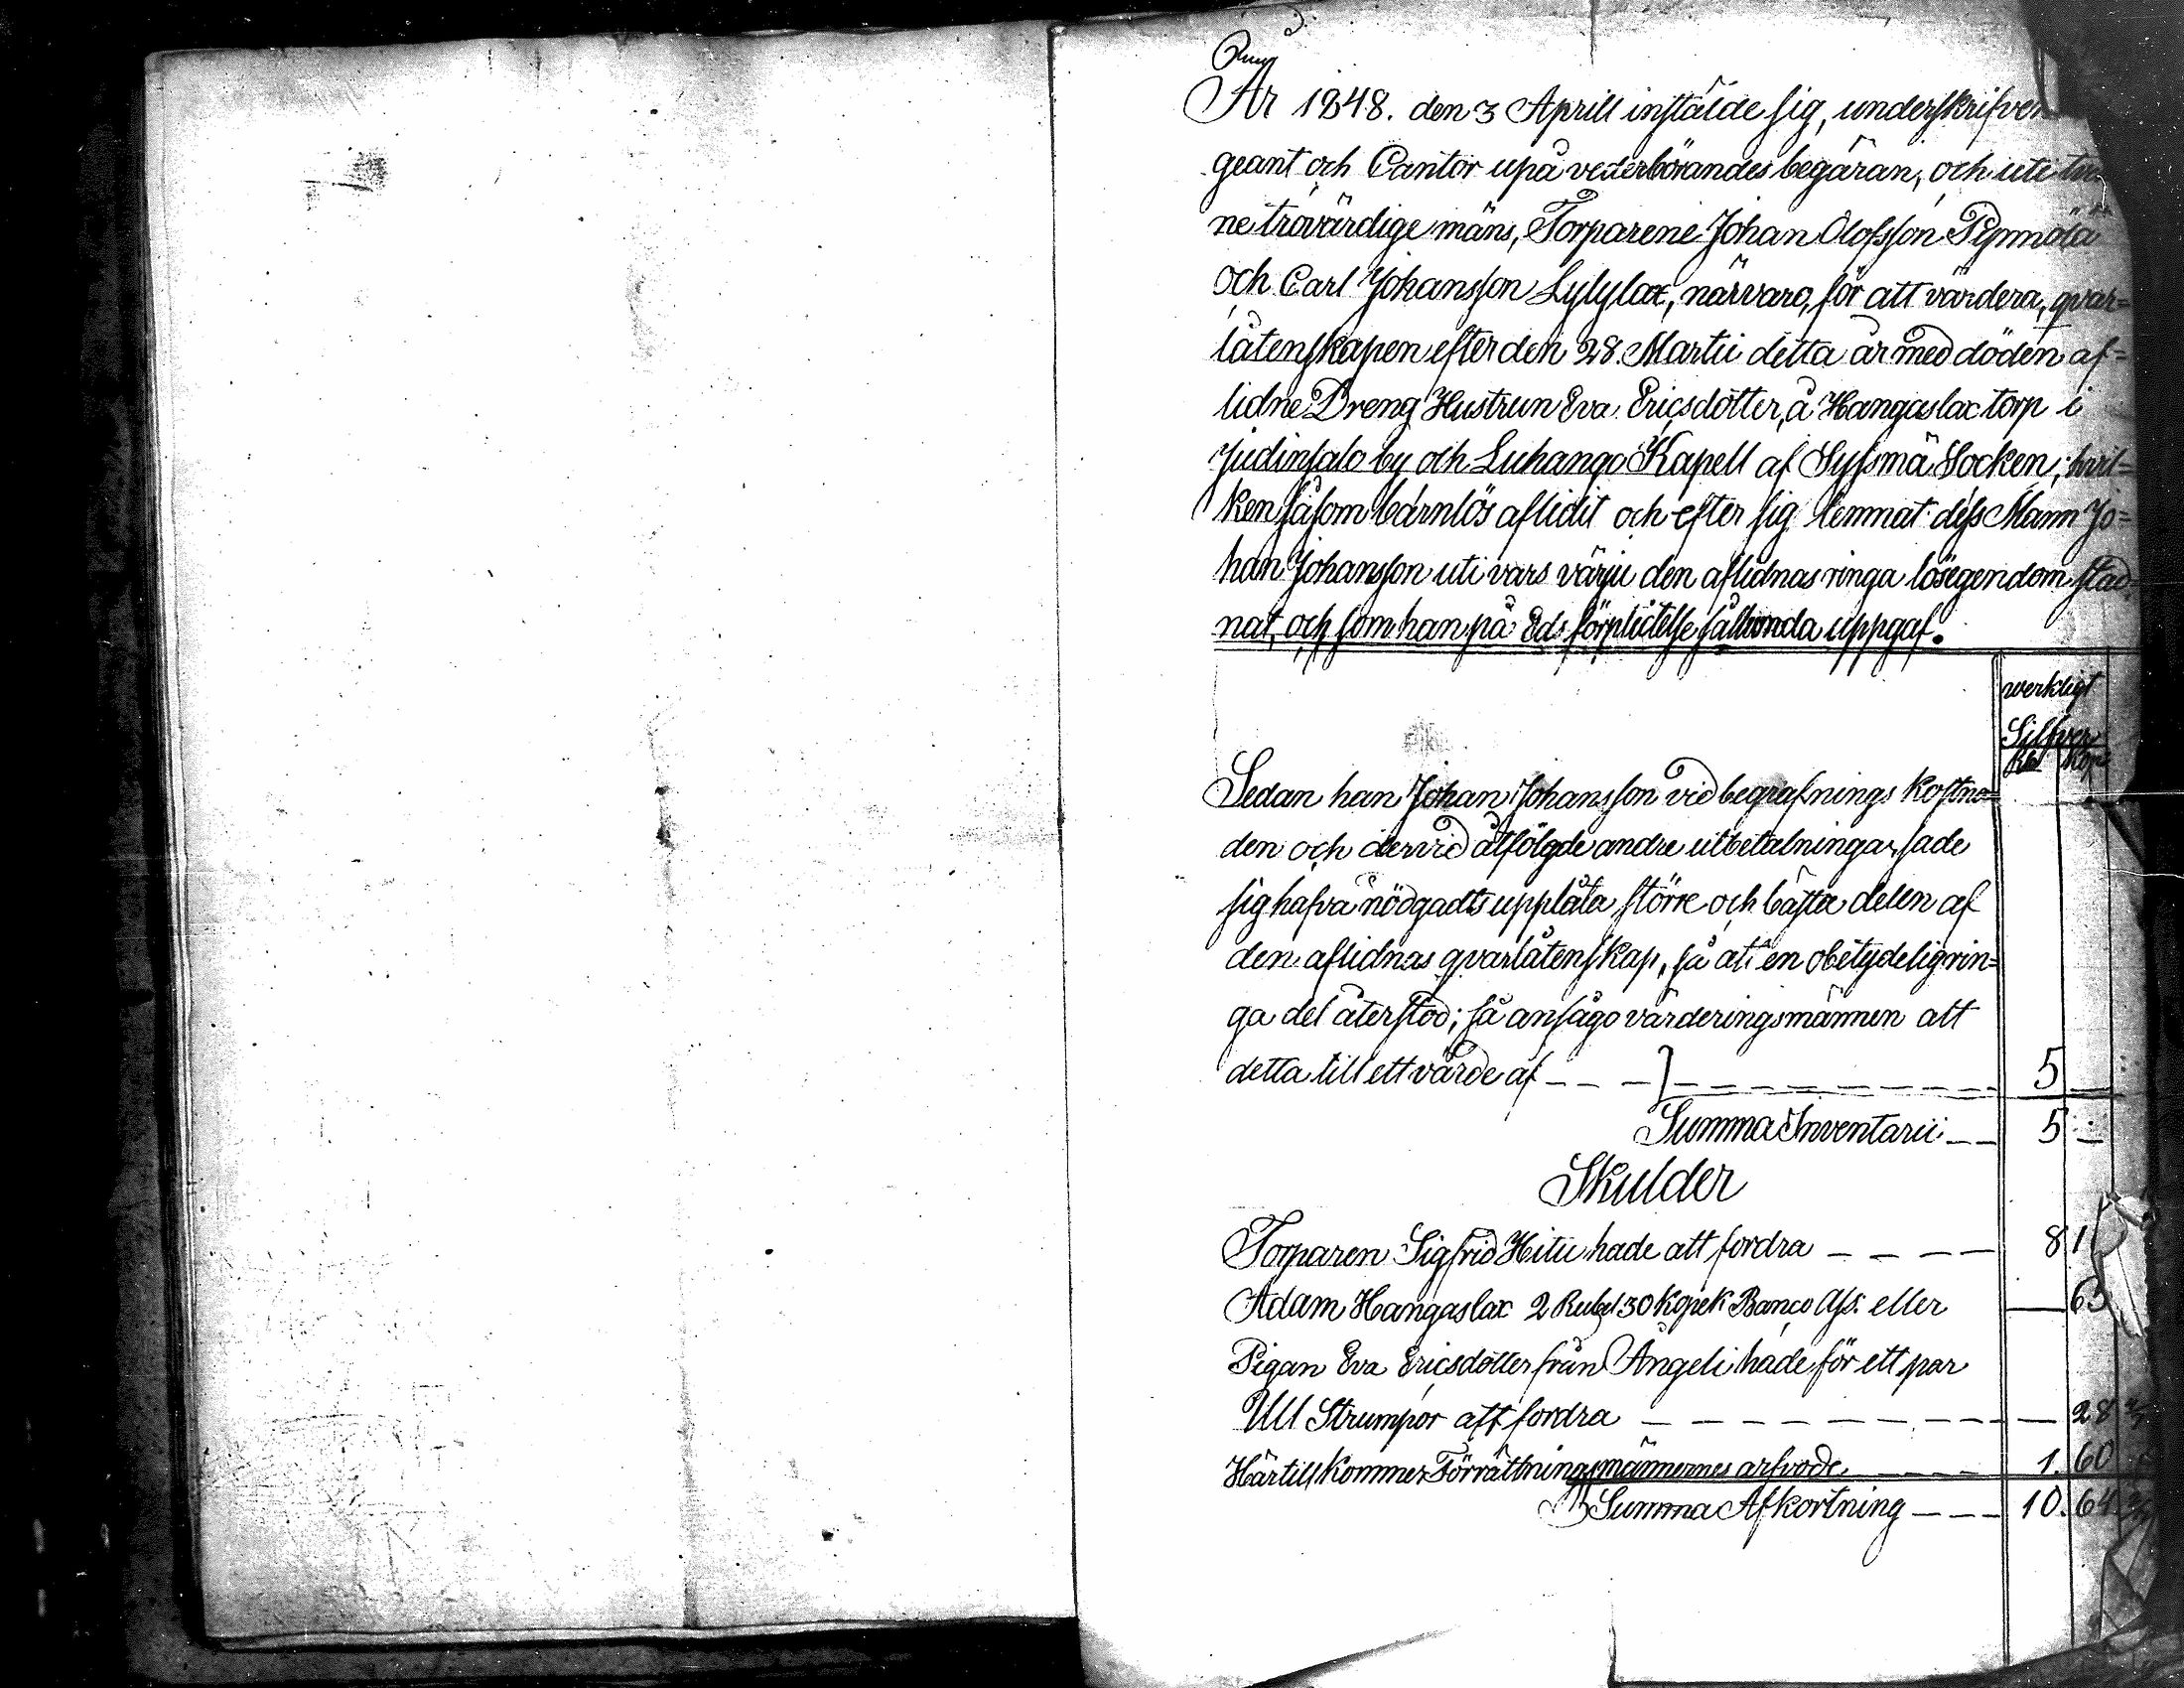 År 1848. den 3 Aprill instälde sig, underskrifven
geant och Cantor upå vederbörandes begäran, och uti
ne trovärdige mäns, Torparene Johan Olofsson Pynnölä
och Carl Johansson Lylylax, närvaro, för att värdera, qvar=
låtenskapen efter den 28. Martii detta år med döden af=
lidne Dreng Hustrun Eva Ericsdotter, å Hangaslax torp i
Judinsalo by och Luhango Kapell af Syssmä Socken, hvil=
ken såsom barnlös aflidit och efter sig lemnat dess Mann Jo=
han Johansson uti vars värju den aflidnas ringa lösegendom stad
nat, och som han på Eds förplictelse sålunda uppgaf.
werkligt
Silfver
Rbl Kop
Sedan han Johan Johansson vid begrafnings kostna=
den och dervid åtfölgde andre utbetalningar, sade
sig hafva nödgadts upplåta större och bästa delen af
den aflidnas qvarlåtenskap, så att en obetydelig rin=
ga del återstod; så ansågo värderingsmännen att
detta till ett värde af _ _ _ 5 _
Summa Inventarii _ _ 5 _
Skulder
Torparen Sigfrid Hitu hade att fordra _ _ _ _ 8 1
Adam Hangaslax 2 Rubel 30 Kopek Banco Ass: eller _ 65
Pigan Eva Ericsdotter från Ångeli hade för ett par
Ull Strumpor att fordra _ _ _ _ _ _ _ _ 28 4/7
Härtill kommer Förrättningsmännernes arfvode. _ _ 1. 60
Summa Afkortning _ _ _ 10. 64